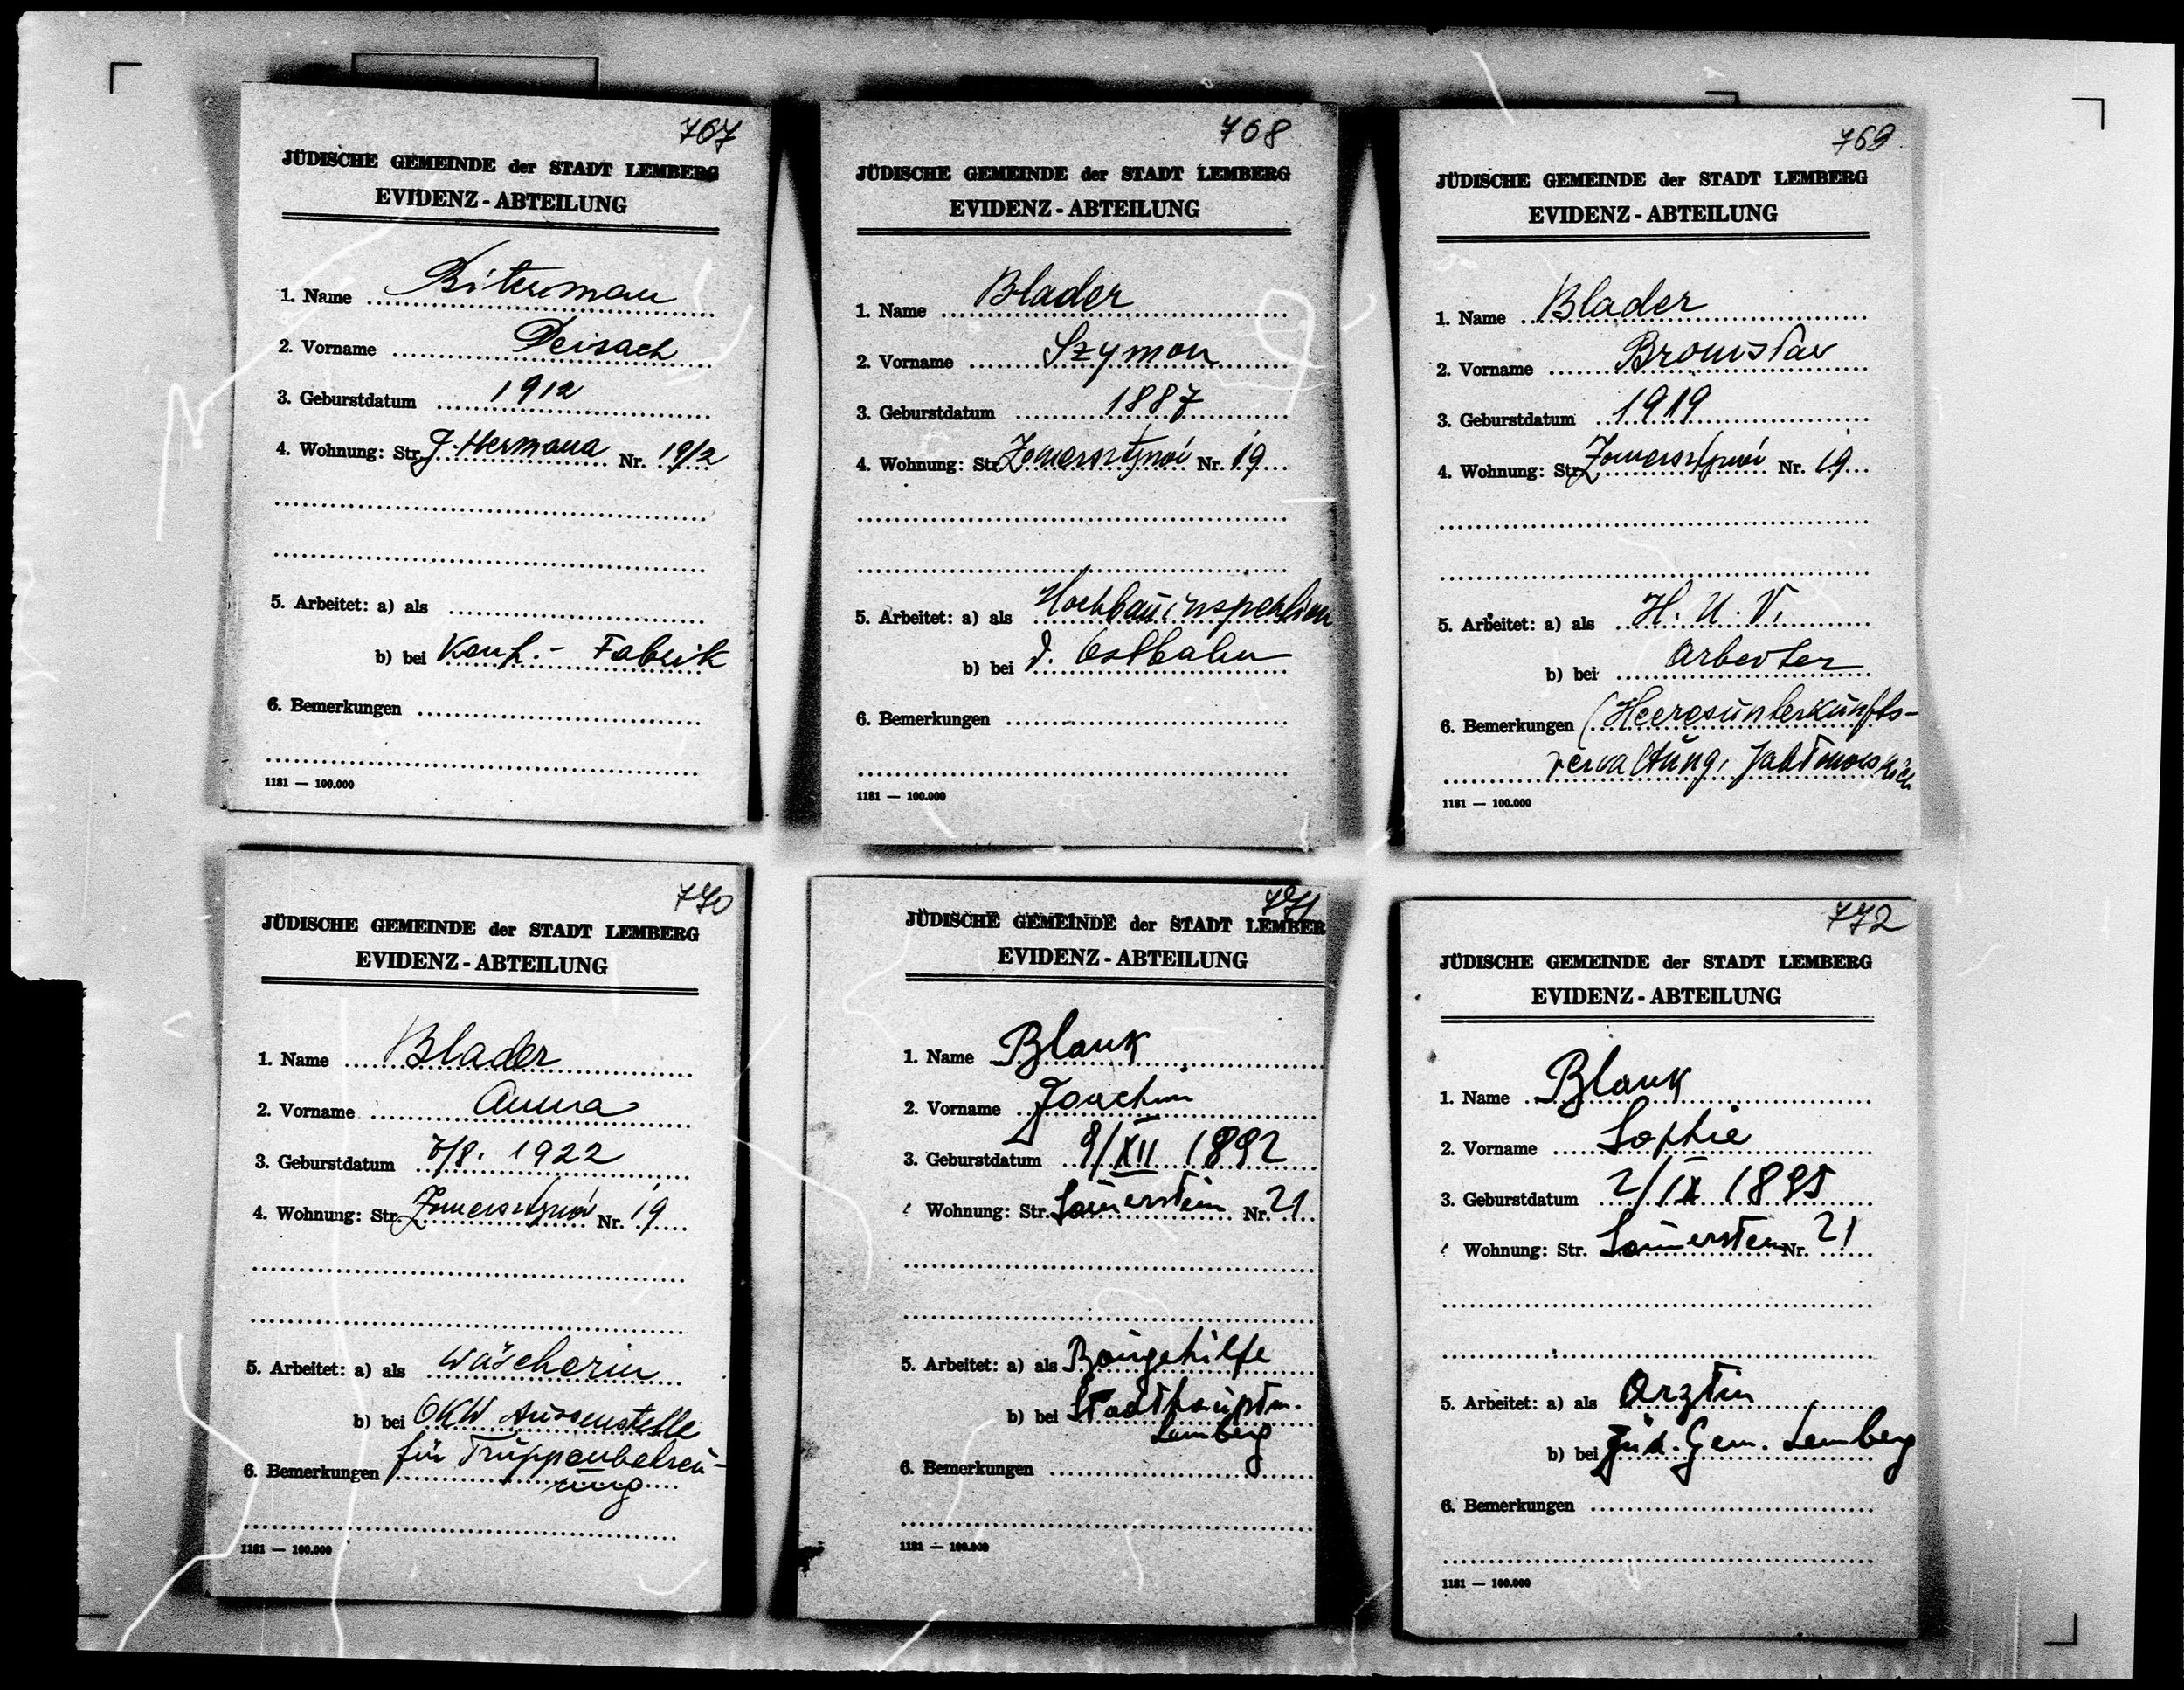 767
JÜDISCHE GEMEINDE der STADT LEMBERG
EVIDENZ - ABTEILUNG
1. Name Biterman
2. Vorname Peisach
3. Geburstdatum 1912
4. Wohnung: Str. J. Hermana Nr. 19/2
5. Arbeitet: a) als
b) bei Konf. - Fabrik
6. Bemerkungen
1181 — 100.000
768
JÜDISCHE GEMEINDE der STADT LEMBERG
EVIDENZ - ABTEILUNG
1. Name Blader
2. Vorname Szymon
3. Geburstdatum 1887
4. Wohnung: Str. Nr. 19
5. Arbeitet: a) als Hochbauinspektion
b) bei d. Ostbahn
6. Bemerkungen
1181 — 100.000
769
JÜDISCHE GEMEINDE der STADT LEMBERG
EVIDENZ - ABTEILUNG
1. Name Blader
2. Vorname Bronisław
3. Geburstdatum 1919
4. Wohnung: Str. Nr. 19
5. Arbeitet: a) als H. U. V.
b) bei Arbeiter
6. Bemerkungen (Heeresunterkunfts-
verwaltung,
1181 — 100.000
770
JÜDISCHE GEMEINDE der STADT LEMBERG
EVIDENZ - ABTEILUNG
1. Name Blader
2. Vorname Anna
3. Geburstdatum 1922
4. Wohnung: Str. Nr. 19
5. Arbeitet: a) als Wäscherin
b) bei OKW Aussenstelle
6. Bemerkungen für Truppenbetreu-
ung
1181 — 100.000
771
JÜDISCHE GEMEINDE der STADT LEMBER
EVIDENZ - ABTEILUNG
1. Name Blank
2. Vorname Joachim
3. Geburstdatum 9/XII 1892
Wohnung: Str. Sauerstein Nr. 21
5. Arbeitet: a) als Baugehilfe
b) bei Stadthauptm.
Lemberg
6. Bemerkungen
1181 — 100.000
772
JÜDISCHE GEMEINDE der STADT LEMBERG
EVIDENZ - ABTEILUNG
1. Name Blank
2. Vorname Sophie
3. Geburstdatum 2/IX 1895
Wohnung: Str. Sauerstein Nr. 21
5. Arbeitet: a) als Arztin
b) bei Jüd. Gem. Lemberg
6. Bemerkungen
1181 — 100.000